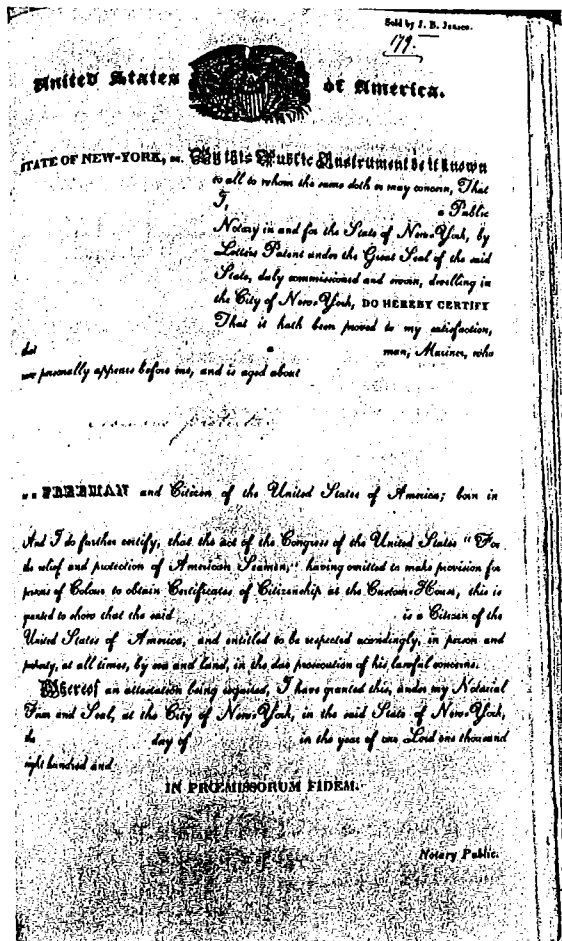 Sold by J. B. Jansen.
179.
United States of America.
STATE OF NEW-YORK, ss. By this Public Instrument be it known
to all to whom the same doth or may concern, That
I, a Public
Notary in and for the State of New-York, by
Letters Patent under the Great Seal of the said
State, duly commissioned and sworn, dwelling in
the City of New-York, DO HEREBY CERTIFY
That it hath been proved to my satisfaction,
that a man, Mariner, who
now personally appears before me, and is aged about
a FREEMAN and Citizen of the United States of America; born in
And I do further certify, that the act of the Congress of the United States "For
the relief and protection of American Seamen," having omitted to make provision for
persons of Colour to obtain Certificates of Citizenship at the Custom-House, this is
granted to show that the said is a Citizen of the
United States of America, and entitled to be respected accordingly, in person and
property, at all times, by sea and land, in the due prosecution of his lawful concerns.
Whereof an attestation being required, I have granted this, under my Notarial
Firm and Seal, at the City of New-York, in the said State of New-York,
the day of in the year of our Lord one thousand
eight hundred and
IN PRŒMISSORUM FIDEM.
Notary Public.